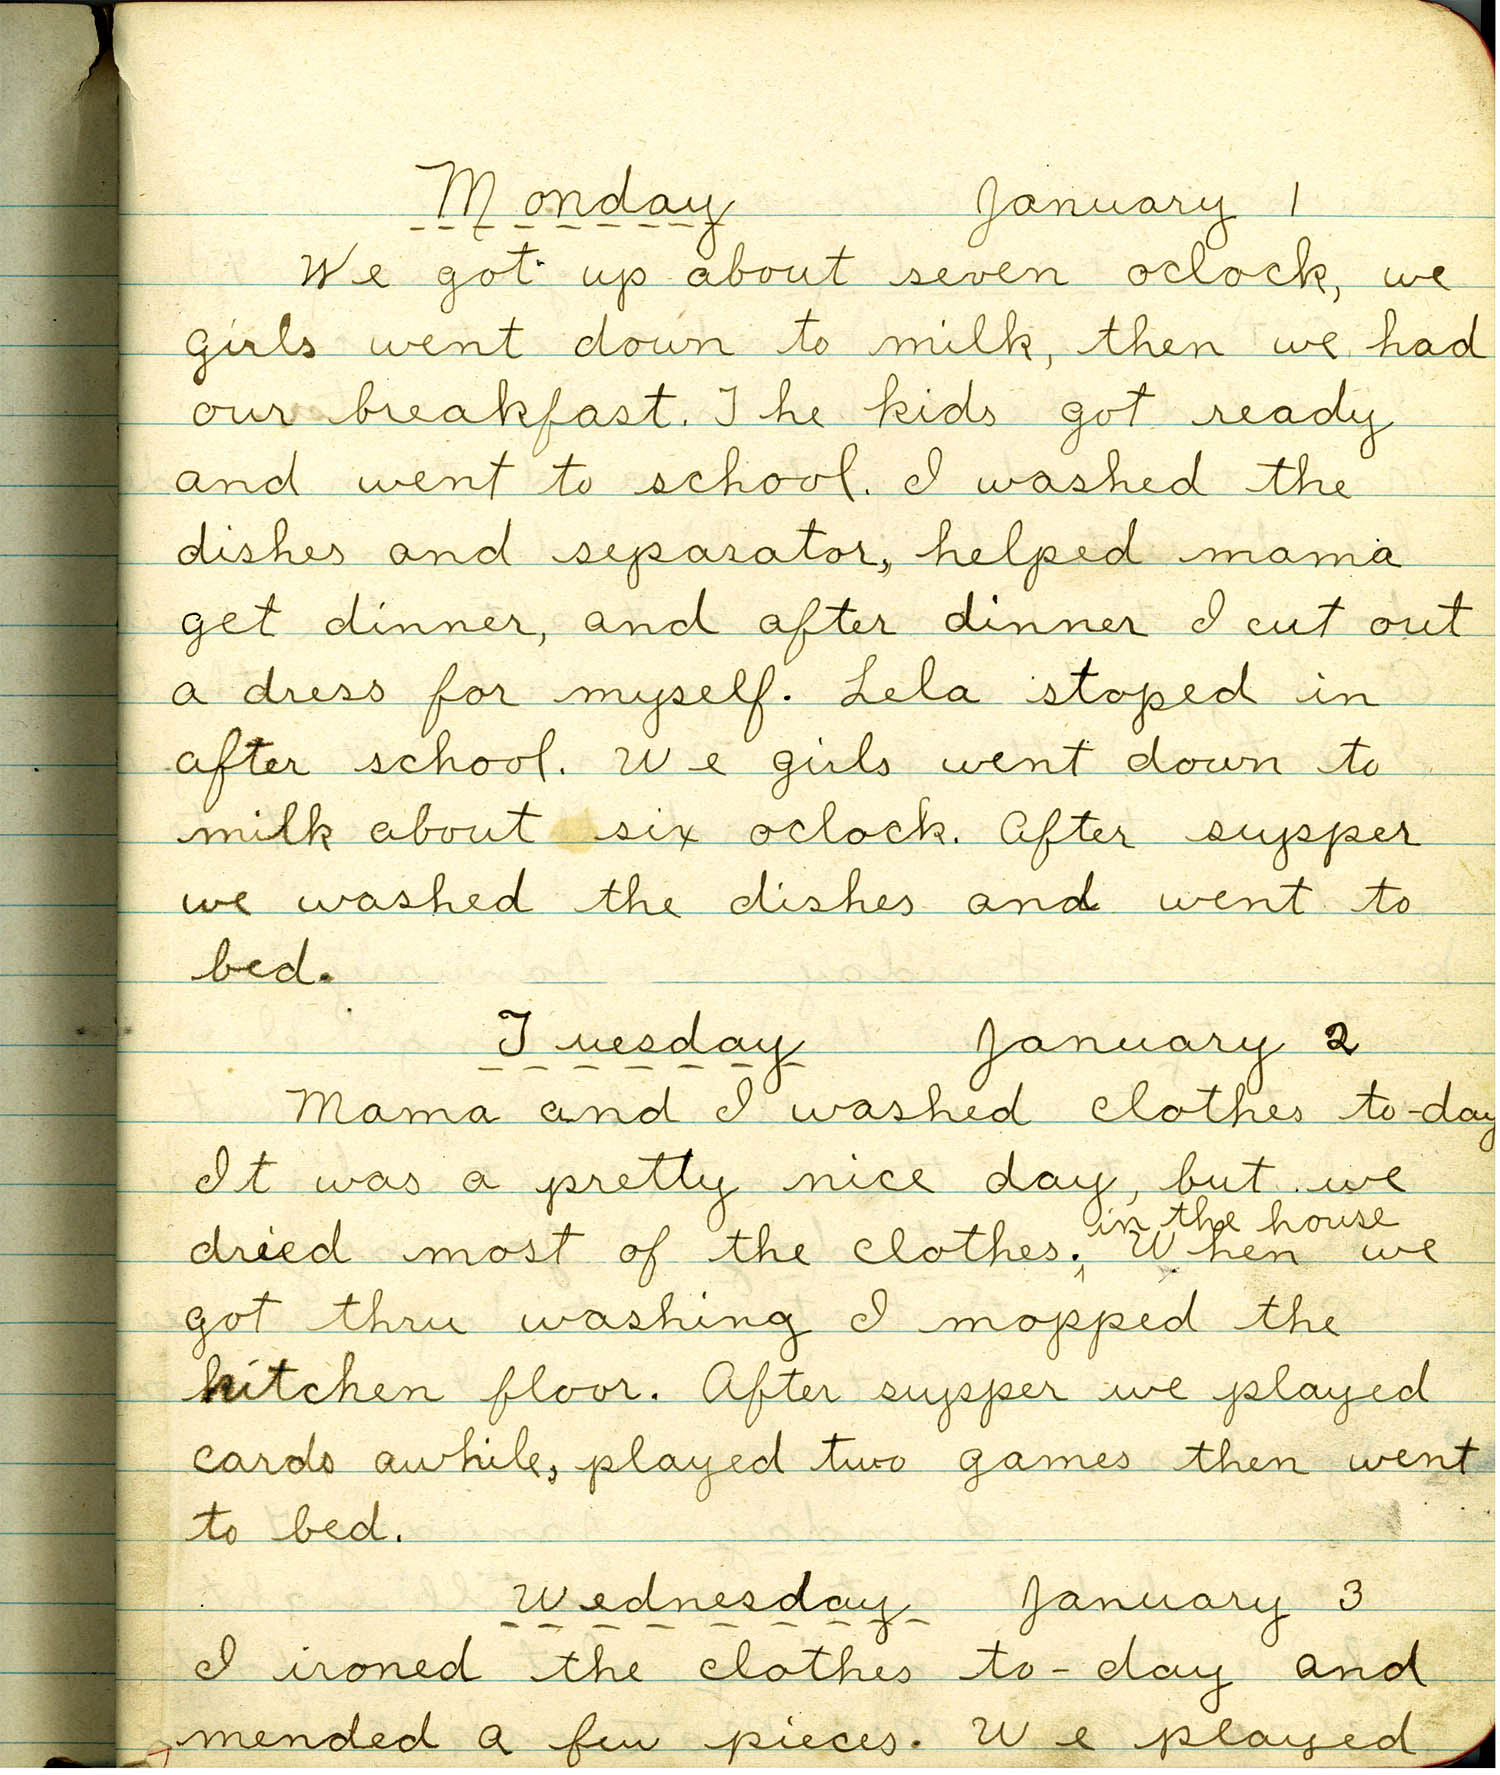 Monday January 1
We got up about seven oclock, we
girls went down to milk, then we had
our breakfast. The kids got ready
and went to school. I washed the
dishes and separator, helped mama
get dinner, and after dinner I cut out
a dress for myself. Lela stoped in
after school. We girls went down to
milk about six oclock. After supper
we washed the dishes and went to
bed.
Tuesday January 2
Mama and I washed clothes to-day
It was a pretty nice day, but we
in the house
dried most of the clothes. When we
got thru washing I mopped the
kitchen floor. After supper we played
cards awhile, played two games then went
to bed.
Wednesday January 3
I ironed the clothes to-day and
mended a few pieces. We played